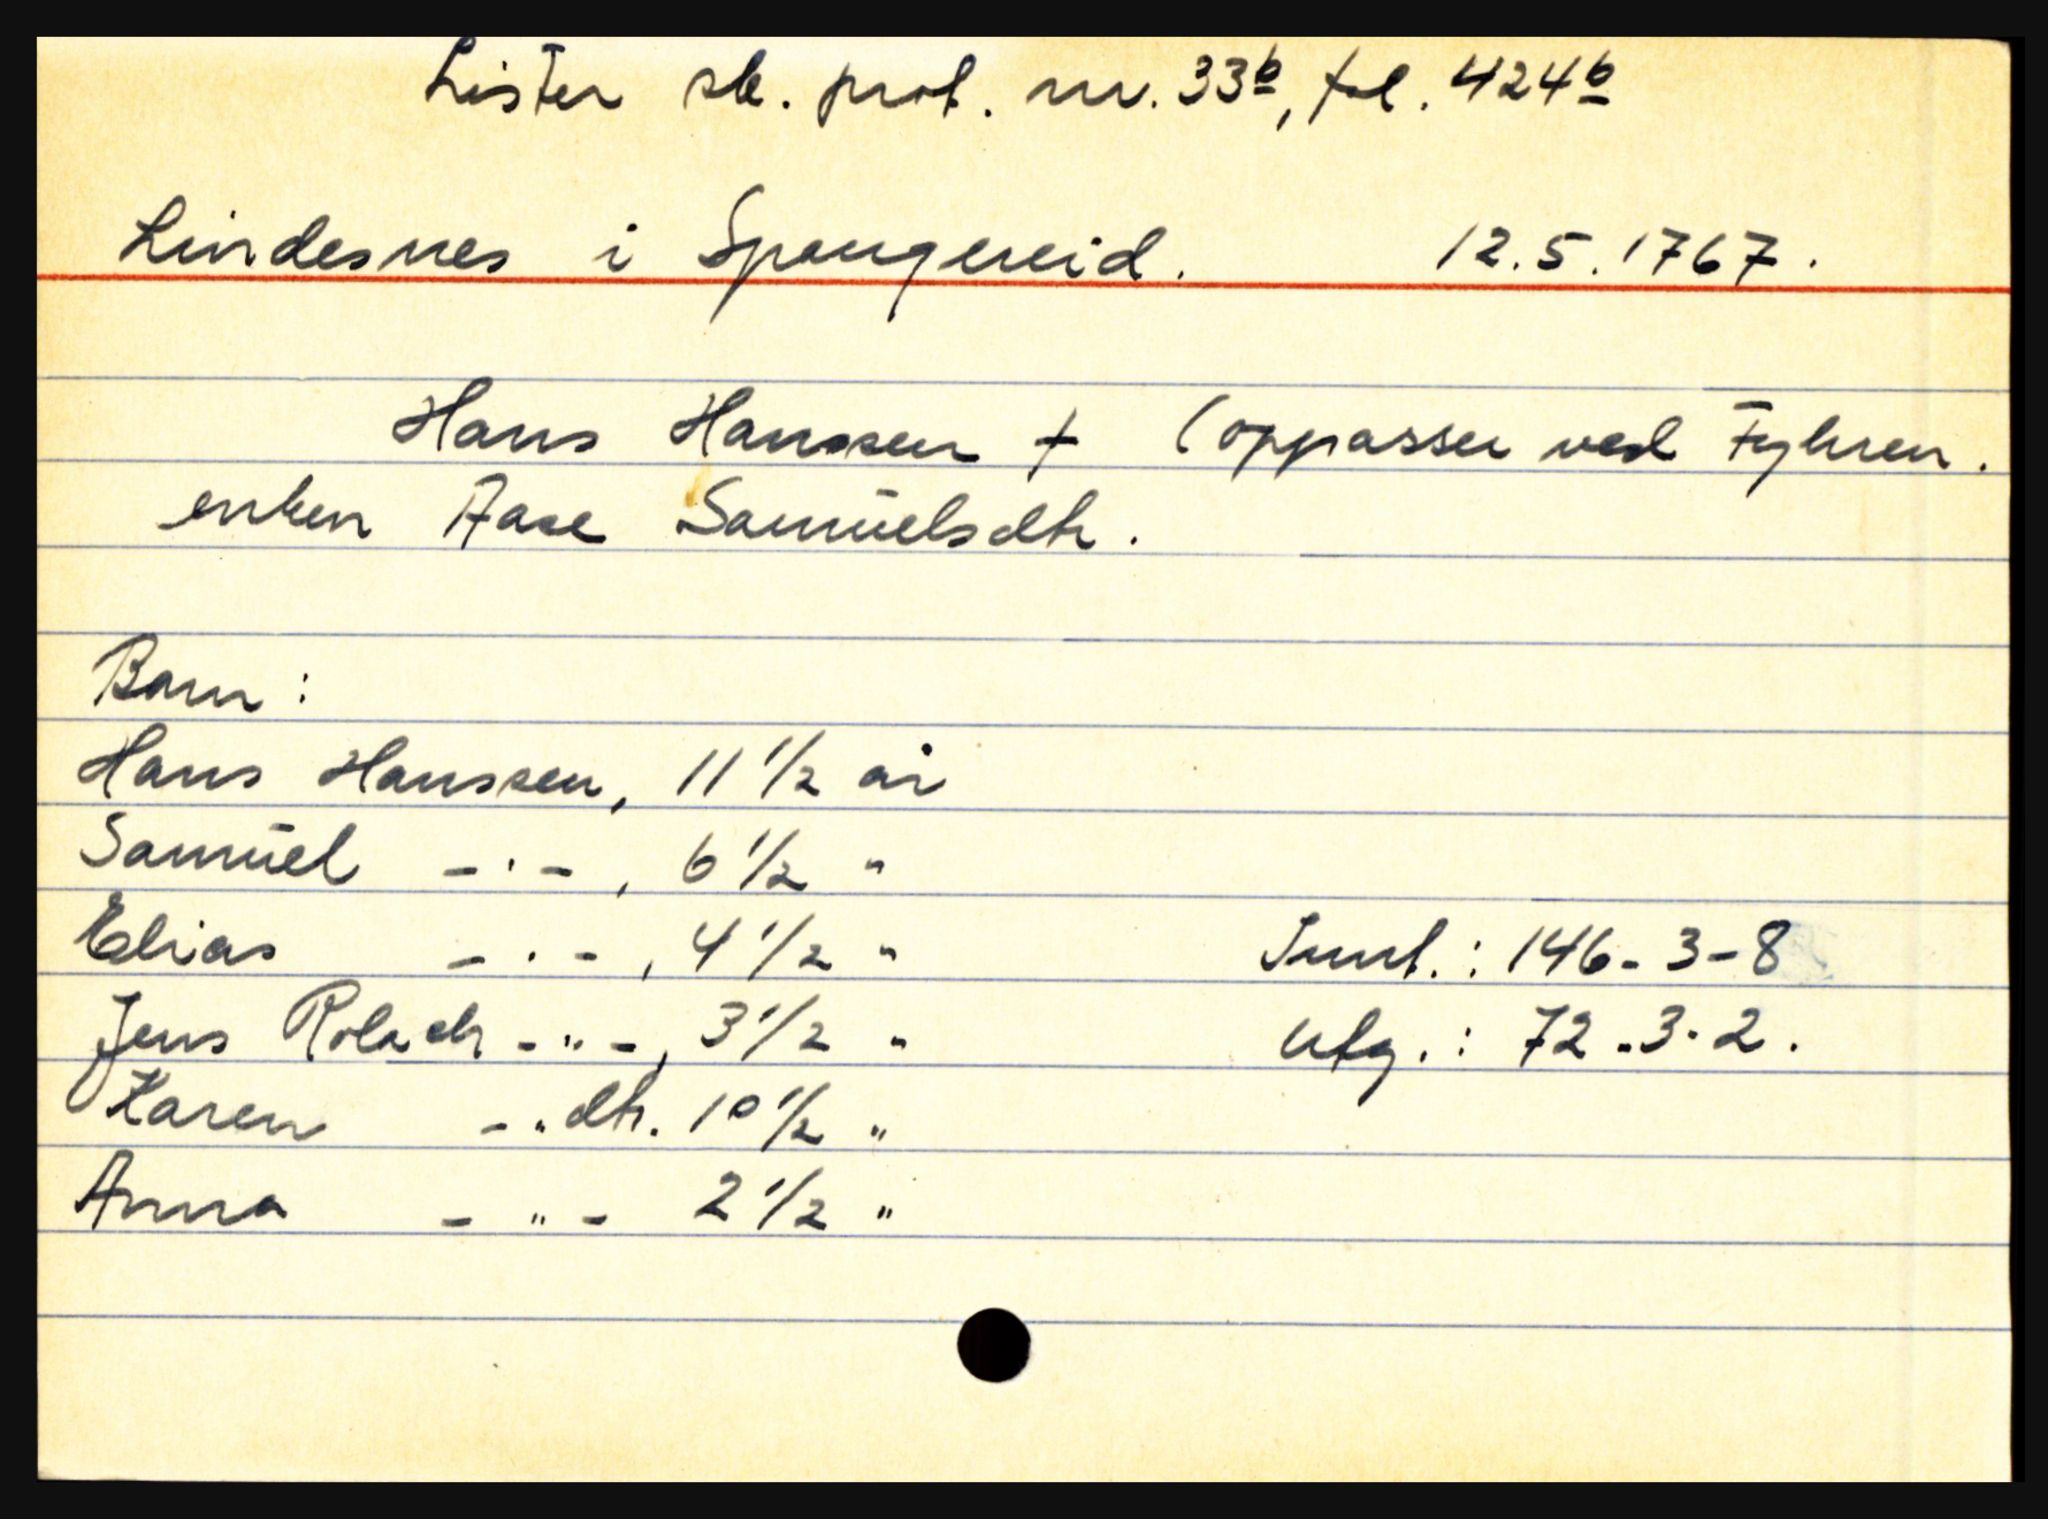 Lister sk. prot. nr. 33b, fol. 424b
Lindesnes i Spangereid. 12.5.1767.
Hans Hanssen † (oppasser ved Fyhren.
enken Aase Samuelsdtr.
Barn:
Hans Hanssen, 11 1/2 år
Samuel -·-, 6 1/2 "
Elias -·-, 4 1/2 " Innt.: 146-3-8
Jens -"-, 3 1/2 " Utg.: 72-3-2.
Karen -"dtr. 10 1/2 "
Anna -"- 2 1/2 "